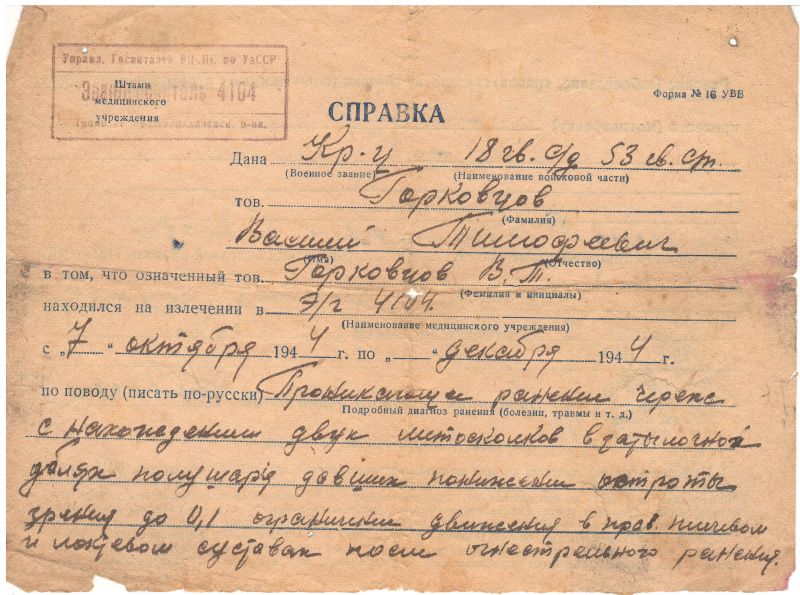 Управл. Госпиталей НЦ-ПС по УзССР
Штамп
Эвакогоспиталь 4104
медицинского
учреждения
Форма № 16 УВВ
СПРАВКА
Дана Кр-у 18 гв. с/д 53 гв. с/п.
(Военское звание) (Наименование войсковой части)
тов. Горковцов
(Фамилия)
Василий Тимофеевич
(Имя) (Отчество)
в том, что означенный тов. Горковцов В. Т.
(Фамилия и инициалы)
находился на излечении в Э/г 4104.
(Наименование медицинского учреждения)
с „7“ октября 1944 г. по „ “ декабря 1944 г.
по поводу (писать по-русски) Проникающее ранение черепа
Подробный диагноз ранения (болезни, травмы и т. д.)
с нахождением двух металлосколков в затылочной
долях полушария давших понижение остроты
зрения до 0,1 ограничение движения в прав. плечевом
и локтевом суставах после огнестрельного ранения.